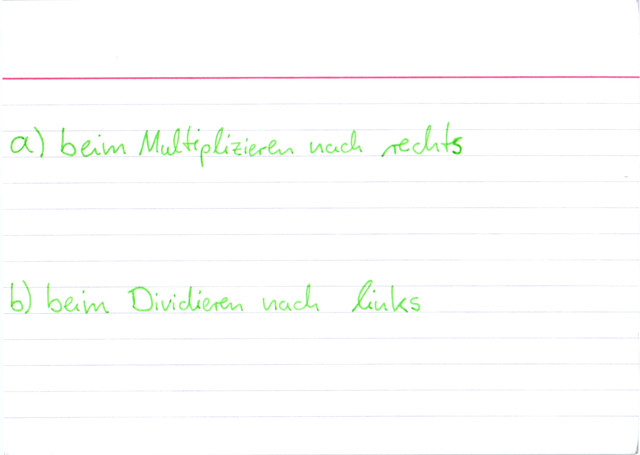 a) beim Multiplizieren nach rechts
b) beim Dividieren nach links